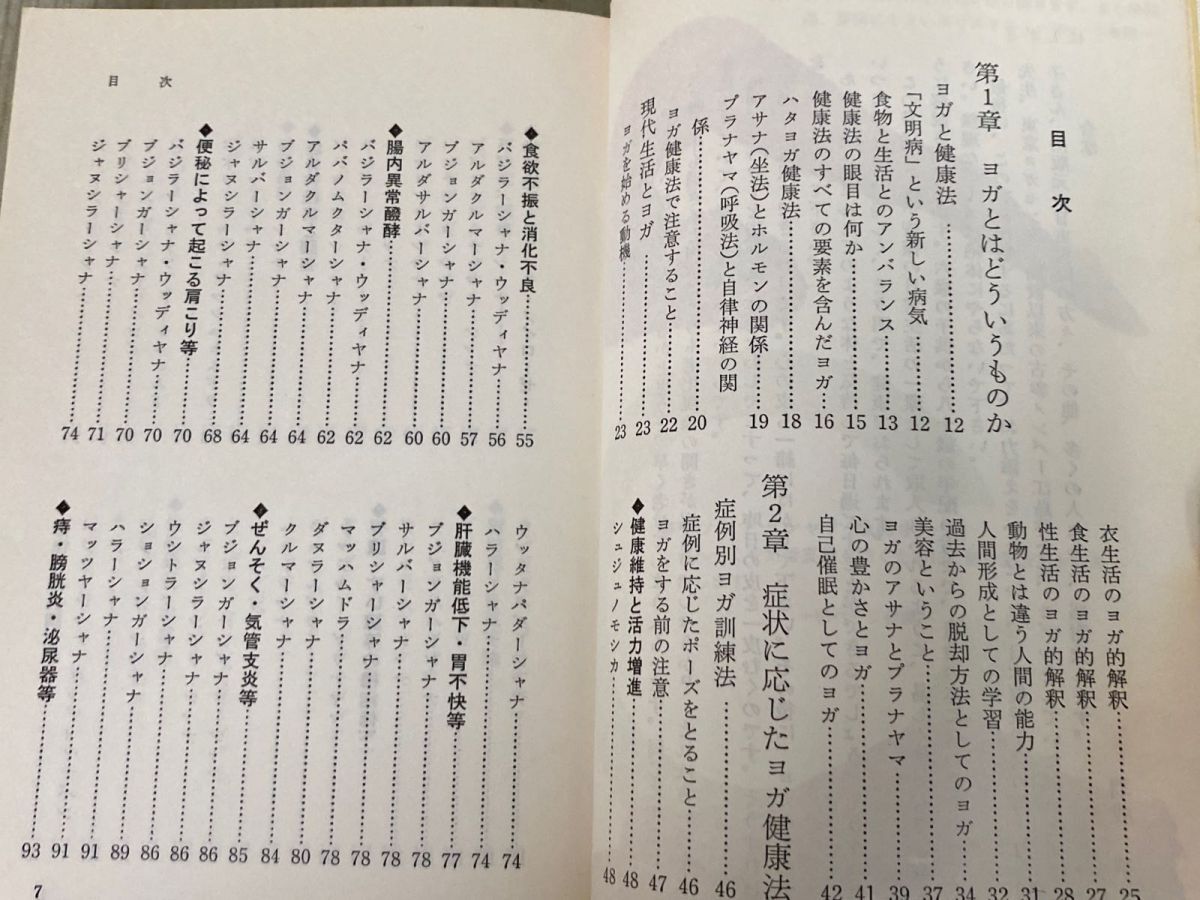 目次
第1章 ヨガとはどういうものか
ヨガと健康法……12
「文明病」という新しい病気……12
食物と生活とのアンバランス……13
健康法の眼目は何か……15
健康法のすべての要素を含んだヨガ……16
ハタヨガ健康法……18
アサナ(坐法)とホルモンの関係……19
プラナヤマ(呼吸法)と自律神経の関
係……20
ヨガ健康法で注意すること……22
現代生活とヨガ……23
ヨガを始める動機……23
衣生活のヨガ的解釈……25
食生活のヨガ的解釈……27
性生活のヨガ的解釈……28
動物とは違う人間の能力……31
人間形成としての学習……32
過去からの脱却方法としてのヨガ……34
美容ということ……37
ヨガのアサナとプラナヤマ……39
心の豊かさとヨガ……41
自己催眠としてのヨガ……42
第2章 症状に応じたヨガ健康法
症例別ヨガ訓練法……46
症例に応じたポーズをとること……46
ヨガをする前の注意……47
◆健康維持と活力増進……48
シュジュノモシカ……48
目次
◆食欲不振と消化不良……55
バジラーシャナ・ウッディヤナ……56
アルダクルマーシャナ……57
ブジョンガーシャナ……60
アルダサルバーシャナ……60
◆腸内異常醱酵……62
バジラーシャナ・ウッディヤナ……62
パバノムクターシャナ……62
アルダクルマーシャナ……64
ブジョンガーシャナ……64
サルバーシャナ……64
ジャヌシラーシャナ……68
◆便秘によって起こる肩こり等……70
バジラーシャナ・ウッディヤナ……70
ブジョンガーシャナ……70
ブリシャーシャナ……71
ジャヌシラーシャナ……74
ウッタナパダーシャナ……74
ハラーシャナ……74
◆肝臓機能低下・胃不快等……77
ブジョンガーシャナ……78
サルバーシャナ……78
ブリシャーシャナ……78
マッハムドラ……78
ダヌラーシャナ……80
クルマーシャナ……84
◆ぜんそく・気管支炎等……85
ブジョンガーシャナ……86
ジャヌシラーシャナ……86
ウシトラーシャナ……86
ショションガーシャナ……89
ハラーシャナ……91
マッツヤーシャナ……91
◆痔・膀胱炎・泌尿器等……93
7